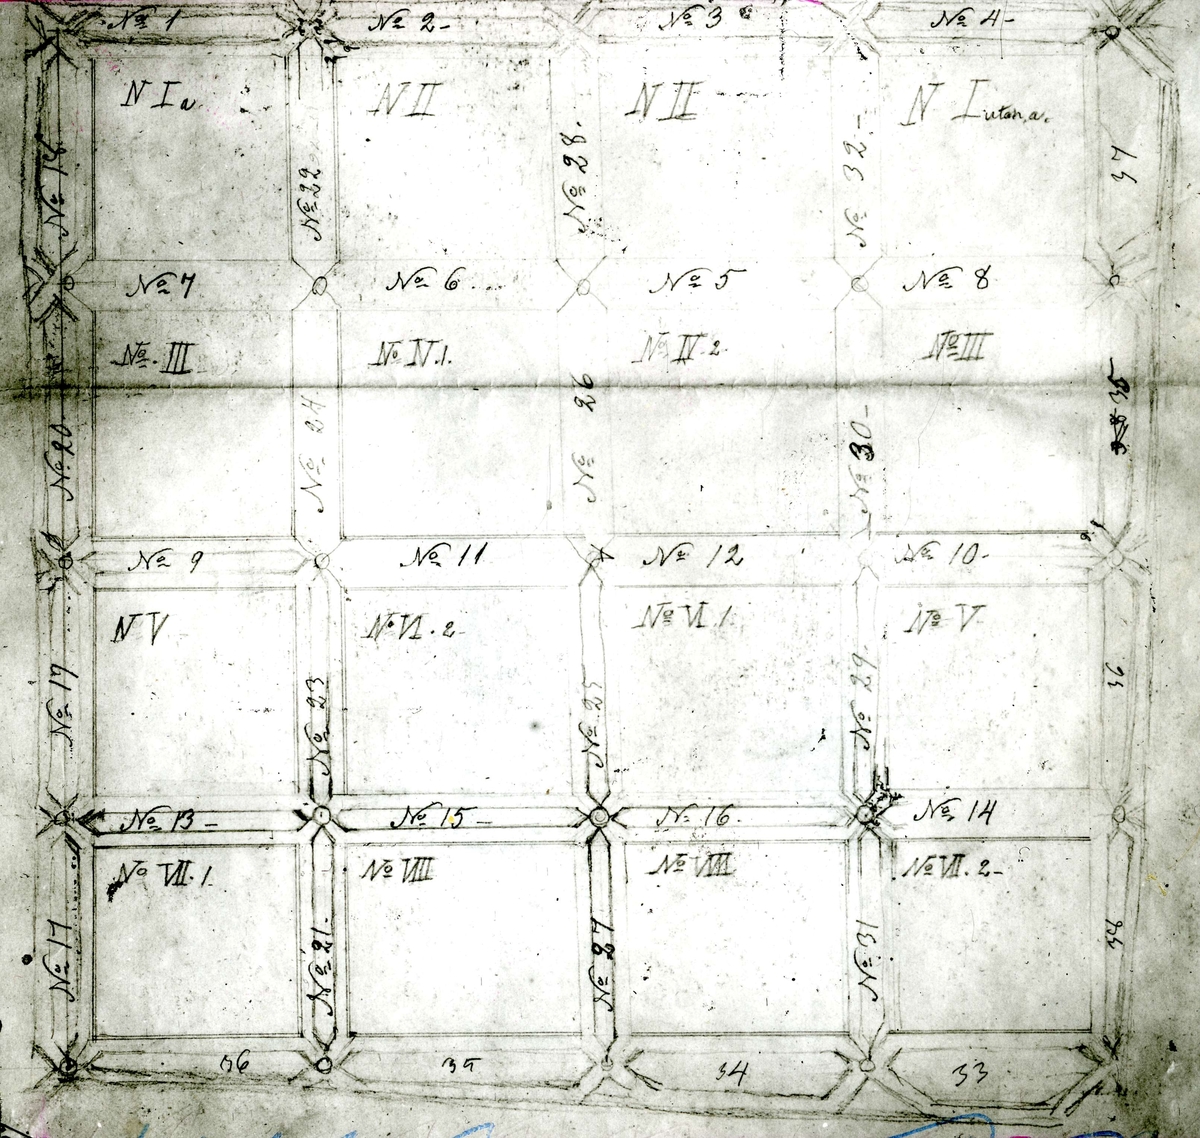 No 1 No 2- No 3 No 4-
N I a N II N II N I
No 18 No 22 No 28. No 32- 
No 7 No 6 No 5 No 8
No. III No IV.1. No IV.2. No III
No 20 No 24 No 26 No 30-
No 9 No 11 No 12 No 10-
N V No VI.2- No VI.1. No V
No 17 No 23 No 25 No 29.
No 13- No 15- No 16. No 14
No VII.1. No VIII No VIII No VII.2-
No 17 No 21- No 27 No 31
36 35 34 33